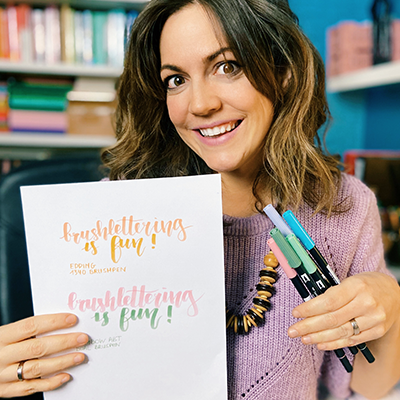 brushlettering
is fun!
EDDING
1340 BRUSHPEN
brushlettering
is fun!
BRUSHPEN